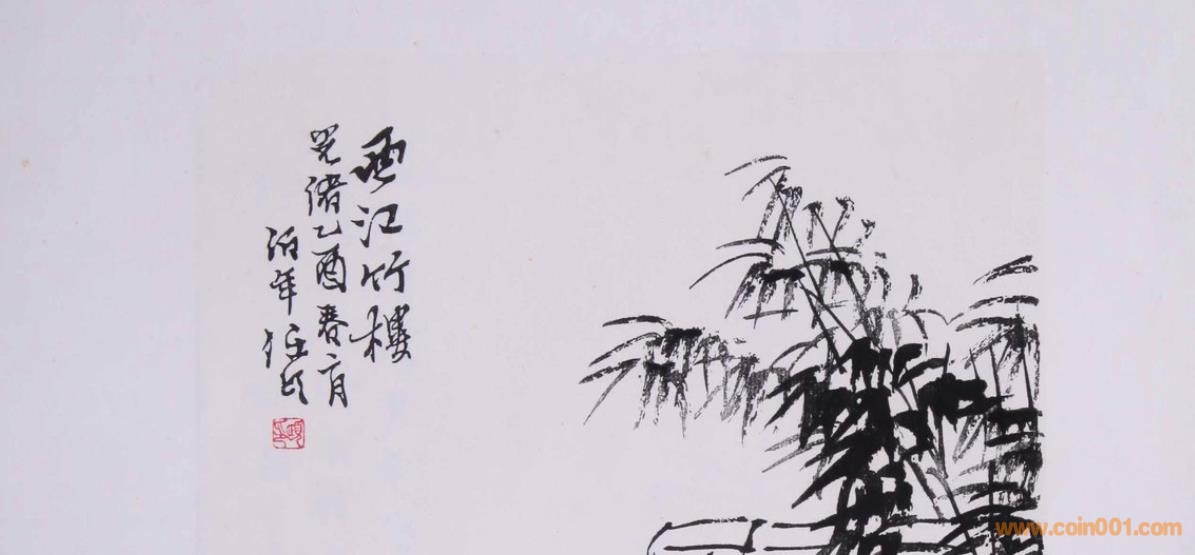 西江竹樓
光緒乙酉春二月
伯年任頤
www.coin001.com